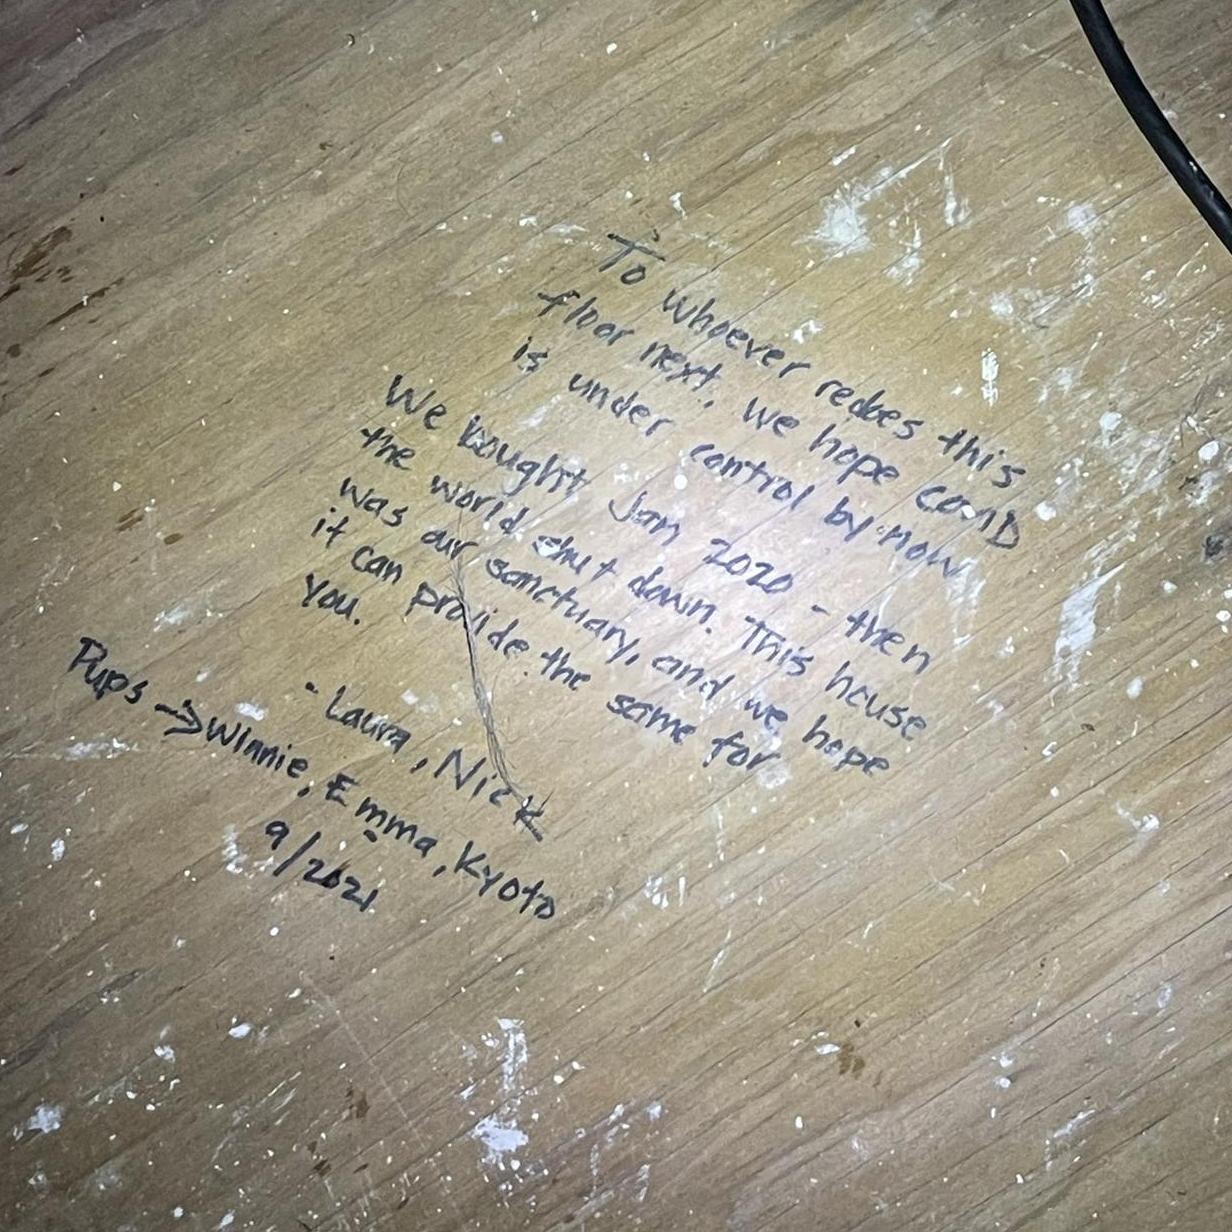 To whoever redoes this
floor next, we hope COVID
is under control by now
We bought Jan 2020 - then
the world shut down. This house
was our sanctuary, and we hope
it can provide the same for
you.
- Laura, Nick
Pups → Winnie, Emma, Kyoto
9/2021